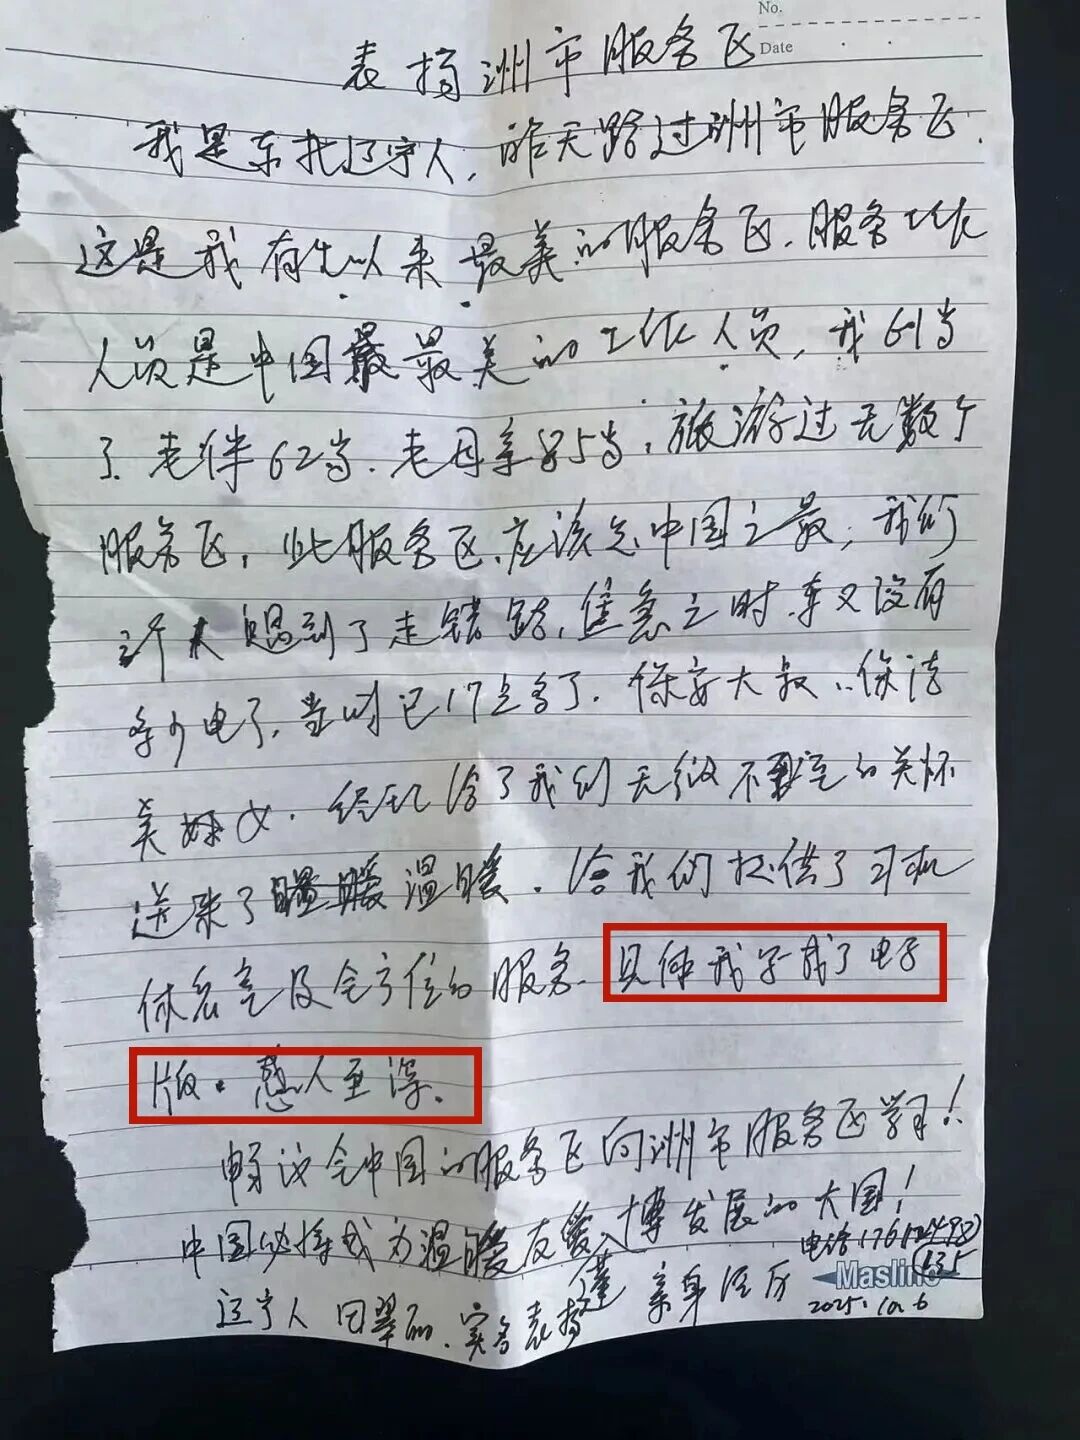 No.
Date
表扬洲市服务区
我是东北辽宁人，昨天路过洲市服务区．
这是我有生以来最美的服务区．服务工作
人员是中国最最美的工作人员，我61岁
了．老伴62岁．老母亲85岁，旅游过无数个
服务区，此服务区应该是中国之最，我们
三个人遇到了走错路，焦急之时．车又没有
多少电了．当时已17点多了．保安大叔．保洁
美妹女．经理给了我们无微不至的关怀
送来了温暖．给我们提供了司机
休息室及全方位的服务．具体我写成了电子
版．感人至深．
倡议全中国的服务区向洲市服务区学习！
中国必将成为温暖友爱蓬博发展的大国！
电话176
Masline
辽宁人 田翠 实名表扬 亲身经历
2025.10.6